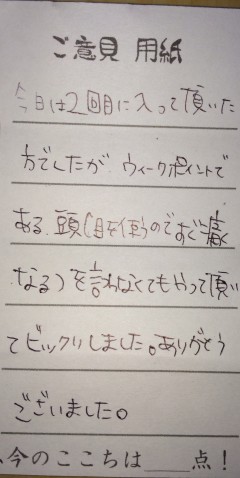 ご意見 用紙
今日は2回目に入って頂いた
方でしたが ウィークポイントで
ある、頭(目を使うのですぐ痛く
なる)を言わなくてもやって頂い
てビックリしました。ありがとう
ございました。
今のここちは___点!